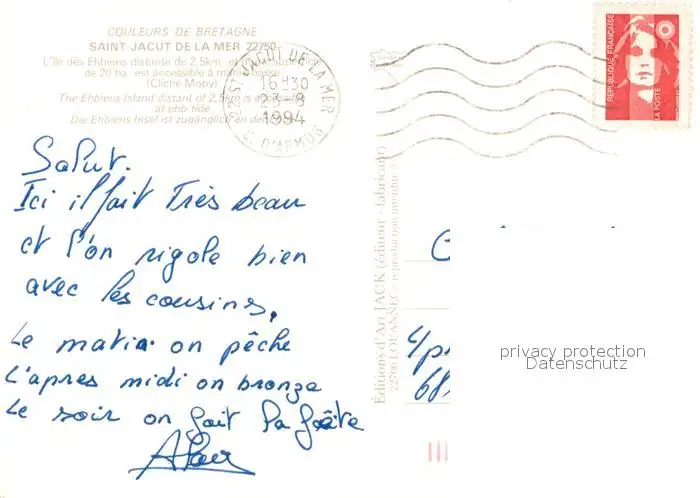 COULEURS DE BRETAGNE
SAINT JACUT DE LA MER 22750
L'île des Ehbiens distante de 2,5km et
de 20 ha. est accessible à marée basse
(Cliché Mopy)
The Ehbiens Island distant of 2,5km is
at ebb tide
Die Ehbiens Insel ist zugänglich an
ST JACUT DE LA MER
16H30
23-8
1994
C. D'ARMOR
RÉPUBLIQUE FRANÇAISE
LA POSTE
Salut.
Ici il fait Très beau
et l'on rigole bien
avec les cousins,
Le matin on pêche
L'apres midi on bronze
Le soir on fait la fête
Editions d'Art JACK (éditeur - fabricant)
22700 LOUANNEC - reproduction interdite
privacy protection
Datenschutz